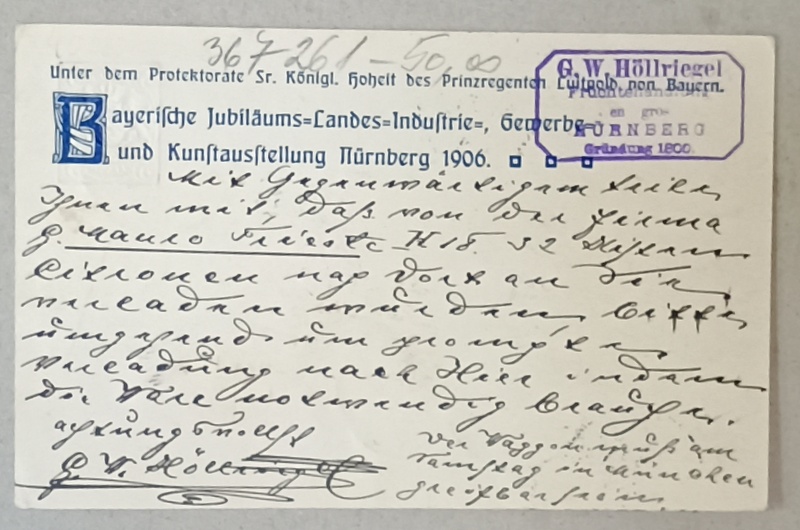 367 261 – 50,00
Unter dem Protektorate Sr. Königl. Hoheit des Prinzregenten Luitpold von Bayern.
Bayerische Jubiläums=Landes=Industrie=, Gewerbe=
und Kunstausstellung Nürnberg 1906.
G. W. Höllriegel
Früchtehandlung
en gros
NÜRNBERG
Gründung 1800.
Mit Gegenwärtigem teile
Ihnen mit, daß von der Firma
G. Mauro Trieste K 18. 32 Kisten
Citronen nach dort an Sie
verladen wurden bitte
umgehend um prompte
Verladung nach Hier indem
die Ware notwendig brauche.
achtungsvollst
G. W. Höllriegel
Der Waggon muß am
Samstag in München
greifbar sein.